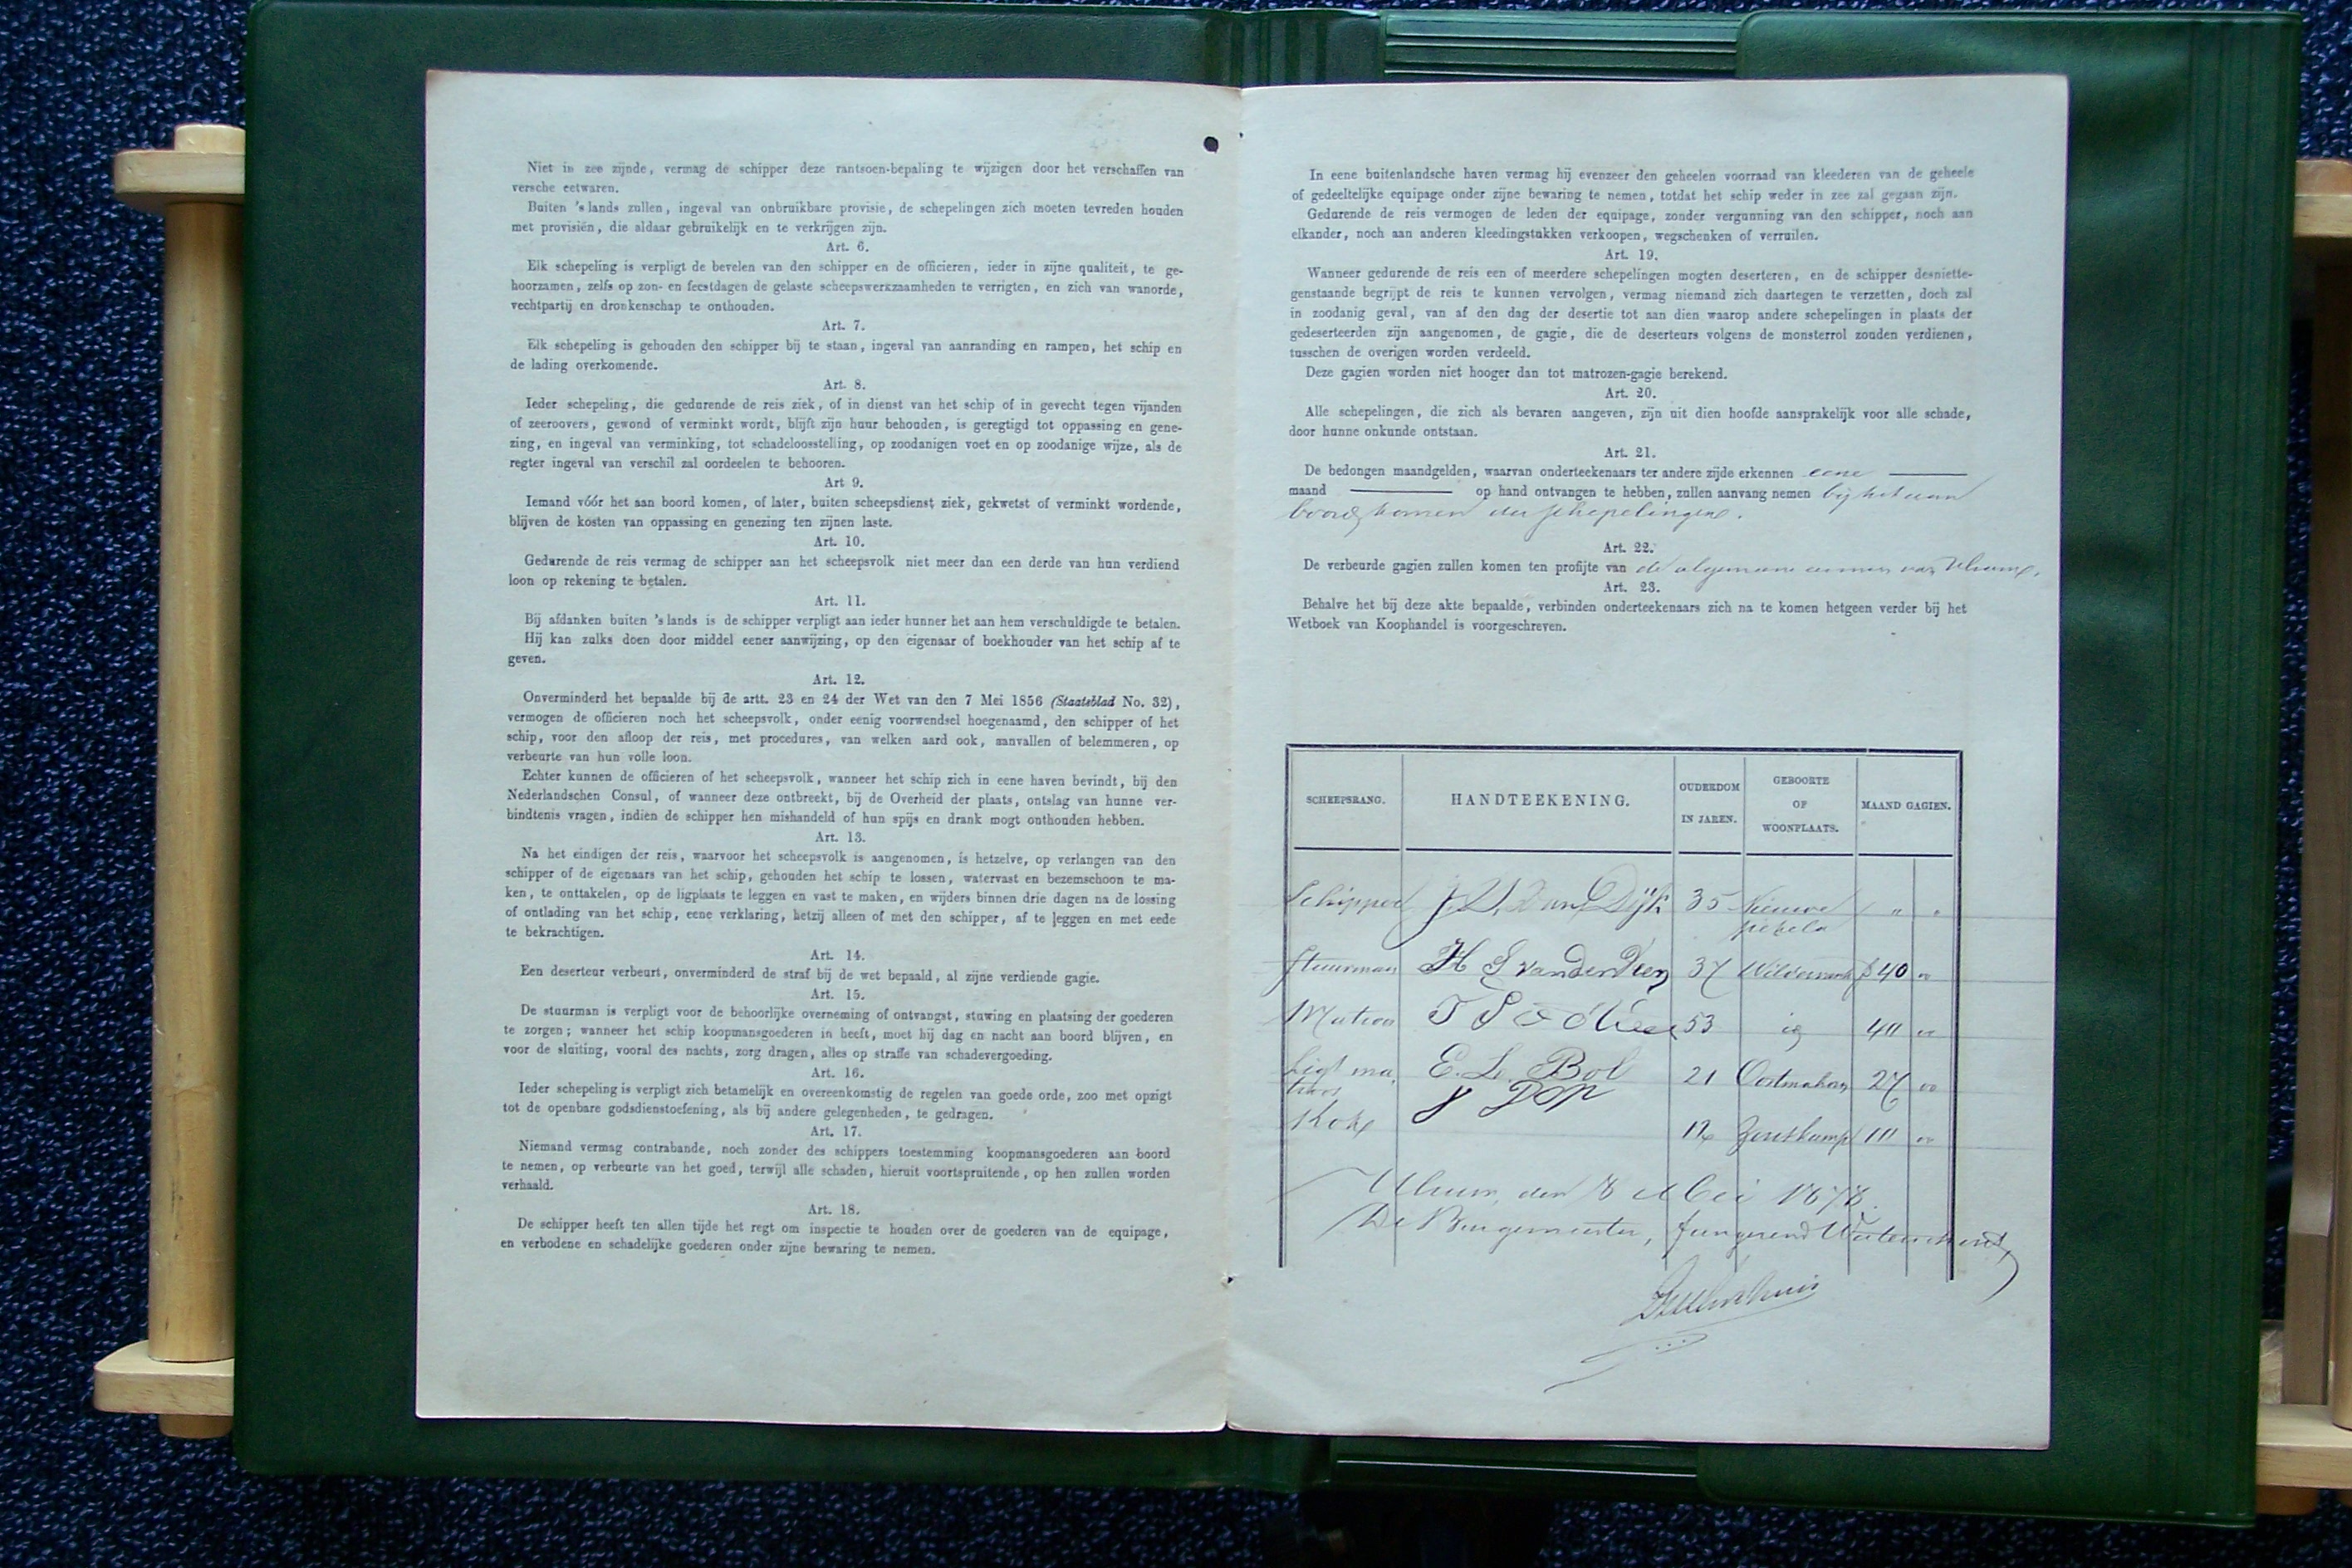 Niet in zee zijnde, vermag de schipper deze rantsoen-bepaling te wijzigen door het verschaffen van
versche eetwaren.
Buiten 's lands zullen, ingeval van onbruikbare provisie, de schepelingen zich moeten tevreden houden
met provisiën, die aldaar gebruikelijk en te verkrijgen zijn.
Art. 6.
Elk schepeling is verpligt de bevelen van den schipper en de officieren, ieder in zijne qualiteit, te ge-
hoorzamen, zelfs op zon- en feestdagen de gelaste scheepswerkzaamheden te verrigten, en zich van wanorde,
vechtpartij en dronkenschap te onthouden.
Art. 7.
Elk schepeling is gehouden den schipper bij te staan, ingeval van aanranding en rampen, het schip en
de lading overkomende.
Art. 8.
Ieder schepeling, die gedurende de reis ziek, of in dienst van het schip of in gevecht tegen vijanden
of zeeroovers, gewond of verminkt wordt, blijft zijn huur behouden, is geregtigd tot oppassing en gene-
zing, en ingeval van verminking, tot schadeloosstelling, op zoodanigen voet en op zoodanige wijze, als de
regter ingeval van verschil zal oordeelen te behooren.
Art 9.
Iemand vóór het aan boord komen, of later, buiten scheepsdienst ziek, gekwetst of verminkt wordende,
blijven de kosten van oppassing en genezing ten zijnen laste.
Art. 10.
Gedurende de reis vermag de schipper aan het scheepsvolk niet meer dan een derde van hun verdiend
loon op rekening te betalen.
Art. 11.
Bij afdanken buiten 's lands is de schipper verpligt aan ieder hunner het aan hem verschuldigde te betalen.
Hij kan zulks doen door middel eener aanwijzing, op den eigenaar of boekhouder van het schip af te
geven.
Art. 12.
Onverminderd het bepaalde bij de artt. 23 en 24 der Wet van den 7 Mei 1856 (Staatsblad No. 32),
vermogen de officieren noch het scheepsvolk, onder eenig voorwendsel hoegenaamd, den schipper of het
schip, voor den afloop der reis, met procedures, van welken aard ook, aanvallen of belemmeren, op
verbeurte van hun volle loon.
Echter kunnen de officieren of het scheepsvolk, wanneer het schip zich in eene haven bevindt, bij den
Nederlandschen Consul, of wanneer deze ontbreekt, bij de Overheid der plaats, ontslag van hunne ver-
bindtenis vragen, indien de schipper hen mishandeld of hun spijs en drank mogt onthouden hebben.
Art. 13.
Na het eindigen der reis, waarvoor het scheepsvolk is aangenomen, is hetzelve, op verlangen van den
schipper of de eigenaars van het schip, gehouden het schip te lossen, watervast en bezemschoon te ma-
ken, te onttakelen, op de ligplaats te leggen en vast te maken, en wijders binnen drie dagen na de lossing
of ontlading van het schip, eene verklaring, hetzij alleen of met den schipper, af te leggen en met eede
te bekrachtigen.
Art. 14.
Een deserteur verbeurt, onverminderd de straf bij de wet bepaald, al zijne verdiende gagie.
Art. 15.
De stuurman is verpligt voor de behoorlijke overneming of ontvangst, stuwing en plaatsing der goederen
te zorgen; wanneer het schip koopmansgoederen in heeft, moet hij dag en nacht aan boord blijven, en
voor de sluiting, vooral des nachts, zorg dragen, alles op straffe van schadevergoeding.
Art. 16.
Ieder schepeling is verpligt zich betamelijk en overeenkomstig de regelen van goede orde, zoo met opzigt
tot de openbare godsdienstoefening, als bij andere gelegenheden, te gedragen.
Art. 17.
Niemand vermag contrabande, noch zonder des schippers toestemming koopmansgoederen aan boord
te nemen, op verbeurte van het goed, terwijl alle schaden, hieruit voortspruitende, op hen zullen worden
verhaald.
Art. 18.
De schipper heeft ten allen tijde het regt om inspectie te houden over de goederen van de equipage,
en verbodene en schadelijke goederen onder zijne bewaring te nemen.
In eene buitenlandsche haven vermag hij evenzeer den geheelen voorraad van kleederen van de geheele
of gedeeltelijke equipage onder zijne bewaring te nemen, totdat het schip weder in zee zal gegaan zijn.
Gedurende de reis vermogen de leden der equipage, zonder vergunning van den schipper, noch aan
elkander, noch aan anderen kleedingstukken verkoopen, wegschenken of verruilen.
Art. 19.
Wanneer gedurende de reis een of meerdere schepelingen mogten deserteren, en de schipper desniette-
genstaande begrijpt de reis te kunnen vervolgen, vermag niemand zich daartegen te verzetten, doch zal
in zoodanig geval, van af den dag der desertie tot aan dien waarop andere schepelingen in plaats der
gedeserteerden zijn aangenomen, de gagie, die de deserteurs volgens de monsterrol zouden verdienen,
tusschen de overigen worden verdeeld.
Deze gagien worden niet hooger dan tot matrozen-gagie berekend.
Art. 20.
Alle schepelingen, die zich als bevaren aangeven, zijn uit dien hoofde aansprakelijk voor alle schade,
door hunne onkunde ontstaan.
Art. 21.
De bedongen maandgelden, waarvan onderteekenaars ter andere zijde erkennen eene
maand op hand ontvangen te hebben, zullen aanvang nemen bij het aan
boord komen der schepelingen.
Art. 22.
De verbeurde gagien zullen komen ten profijte van de algemeene armen van Ulrum.
Art. 23.
Behalve het bij deze akte bepaalde, verbinden onderteekenaars zich na te komen hetgeen verder bij het
Wetboek van Koophandel is voorgeschreven.
SCHEEPSRANG. HANDTEEKENING. OUDERDOM IN JAREN. GEBOORTE OF WOONPLAATS. MAAND GAGIEN.
Schipper J. Van Dijk 35 Nieuwe " "
pekela
Stuurman H S van der Veen 37 Wildervank f 40 "
Matroos 53 id 40 "
Ligt ma E. L. Bol 21 Oostmahorn 27 "
troos
Kok J Dop Zoutkamp "
Ulrum, den 8 Mei 1878.
De Burgemeester, fungerend Waterschout,